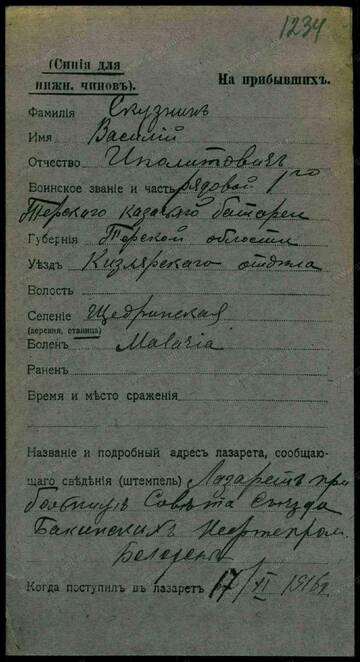 1234
(Синія для
нижн. чиновъ).
На прибывшихъ.
Фамилія Скузникъ
Имя Василій
Отчество Иполитовичъ
Воинское званіе и часть рядовой 1го
Терскаго казачьяго батареи
Губернія Терской области
Уѣздъ Кизлярскаго отдѣла
Волость
Селеніе Щедринская
(деревня, станица)
Боленъ Malaria
Раненъ
Время и мѣсто сраженія
Названіе и подробный адресъ лазарета, сообщаю-
щаго свѣдѣнія (штемпель) Лазаретъ при
больницѣ Совѣта Съѣзда
Бакинскихъ Нефтепром.
Когда поступилъ въ лазаретъ 17/XI 1916 г